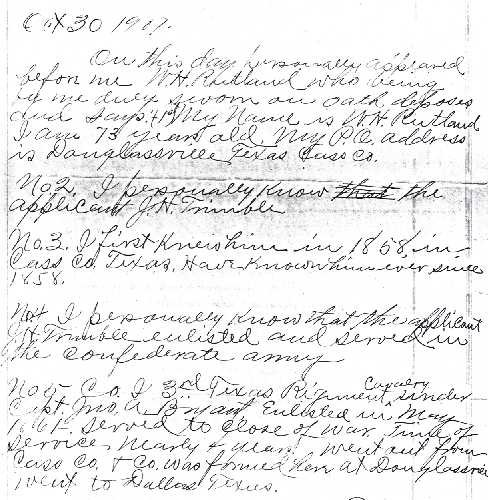 Oct 30 1907.
On this day personally appeared
before me W.H. Rutland who being
by me duly sworn on oath deposes
and says #1st My Name is W.H. Rutland
I am 73 years old. My P.O. address
is Douglassville Texas Cass Co.
No 2. I personally know that the
applicant J.H. Trimble
No. 3. I first knew him in 1858 in
Cass Co. Texas. Have known him ever since
1858.
No 4 I personally know that the applicant
J.H. Trimble enlisted and served in
the Confederate army
No 5 Co. I 3rd Texas Rigment Cavalry under
Capt. Jno. A. Bryan Enlisted in May
1861. served to close of war. Time of
service nearly 4 years. Went out from
Cass Co. & Co. was formed here at Douglassville
went to Dallas Texas.